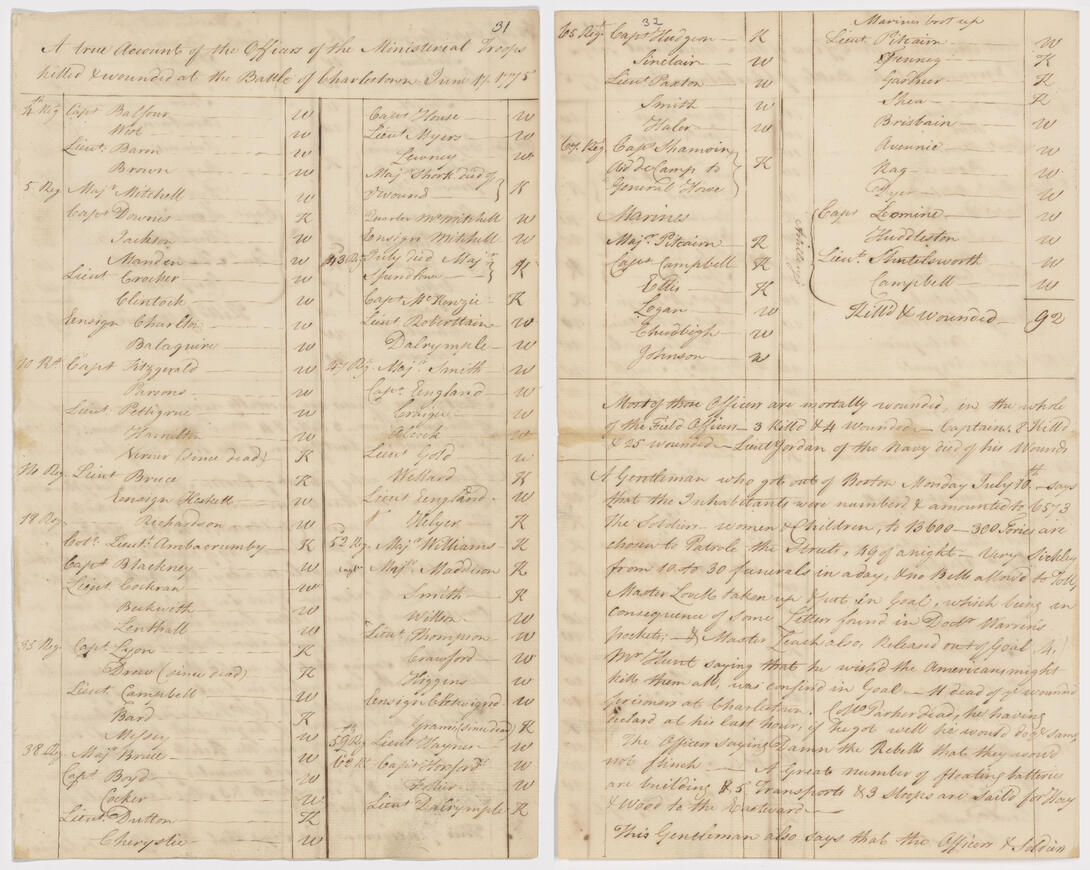 31
A true Account of the Officers of the Ministerial Troops
killed & wounded at the Battle of Charlestown June 17. 1775
4th Reg Capt Balfour w
West w
Lieut. Baron w
Brown w
5 Reg Majr Mitchell w
Capt Downes K
Jackson w
Marsden w
Lieut Crocker w
Clintock w
Ensign Charlton w
Balaguire w
10 Rt Capt Fitzgerald w
Parsons w
Lieut Pettigrue w
Hamilton w
Verner (since dead) K
14 Reg Lieut Bruce K
Ensign Heskett w
18 Reg Richardson w
Colo. Lieut. Ambacrumby K
Capt Blackney w
Lieut Cockran w
Beckwith w
Lenthall w
35 Reg Capt Lyon K
Drew (since dead) K
Lieut Campbell w
Bard K
Messey w
38 Reg Majr Bruce w
Capt Boyd w
Cocker w
Lieut Dutton K
Chrystie w
Capt House w
Lieut Myers w
Lewney w
Majr Shork died of
wound K
Quarter Mr Mitchell w
Ensign Mitchell w
43 Reg July died Majr
Spendlow K
Capt McKenzie K
Lieut Roberttain w
Dalrymple w
47 Reg Majr Smith w
Capt England w
Craige w
Alcock w
Lieut Gold w
Willard K
Lieut England w
Helyer K
52 Reg Majr Williams K
Majr Maddison K
Smith K
Wilson w
Lieut Thompson w
Crawford w
Higgens w
Ensign w
(since dead) K
59 Reg Lieut Haynes w
Capt Horsford w
Folier w
Lieut Dalrymple K
32
65 Regt Capt Hudgson K
Sinclair w
Lieut Paxton w
Smith w
Haler w
67 Reg Capt Shamoin
Aid de Camp to
General Howe K
Marines
Majr Pitcairn K
Capt Campbell K
Ellis K
Logan w
Chudleigh w
Johnson w
Marines brot up
Lieut Pitcairn w
Finney K
Gardner K
Shea K
Brisbain w
Avennie w
Rag w
Dyer w
Capt Lemine w
Huddleston w
Lieut. w
Campbell w
Kill'd & wounded 92
Most of those Officers are mortally wounded, in the whole
of the Field Officers 3 killed & 4 wounded Captains 8 killd
& 25 wounded Lieut Jordan of the Navy died of his Wounds
A Gentleman who got out of Boston Monday July 10th says
that the Inhabitants were numberd & amounted to 6573
the Soldiers women & Children, to 13600 300 Tories are
chosen to Patrole the Streets, 49 of a night very Sickley
from 10 to 30 funerals in a day, & no Bells allow'd to Toll,
Master Lovell taken up & put in Goal, which being in
consequence of some Letters found in Doctr Warrens
pocket; & Master Leach also, Released out of Goal 4.
Mr Hunt saying that he wish'd the Americans might
kill them all, was confind in Goal 11 dead of ye wound
prisoners at Charlestown. Colo Parker dead, he having
declard at his last hour, if he got well he would do ye same
The Officers saying Damn the Rebells that they would
not flinch A Great number of floating batteries
are building & 5 Transports & 3 sloops are Saild for Hay
& Wood to the Eastward
This Gentleman also says that the Officers & Soldiers